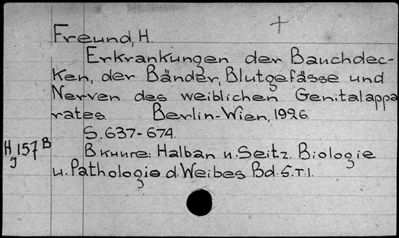 Freund, H.
Erkrankungen der Bauchdec-
ken, der Bänder, Blutgefässe und
Nerven des weiblichen Genitalappa
rates Berlin-Wien, 1926
S. 637-674.
H 157 B
J
В книге: Halban u. Seitz. Biologie
u. Pathologie d. Weibes Bd. 5. T. I.